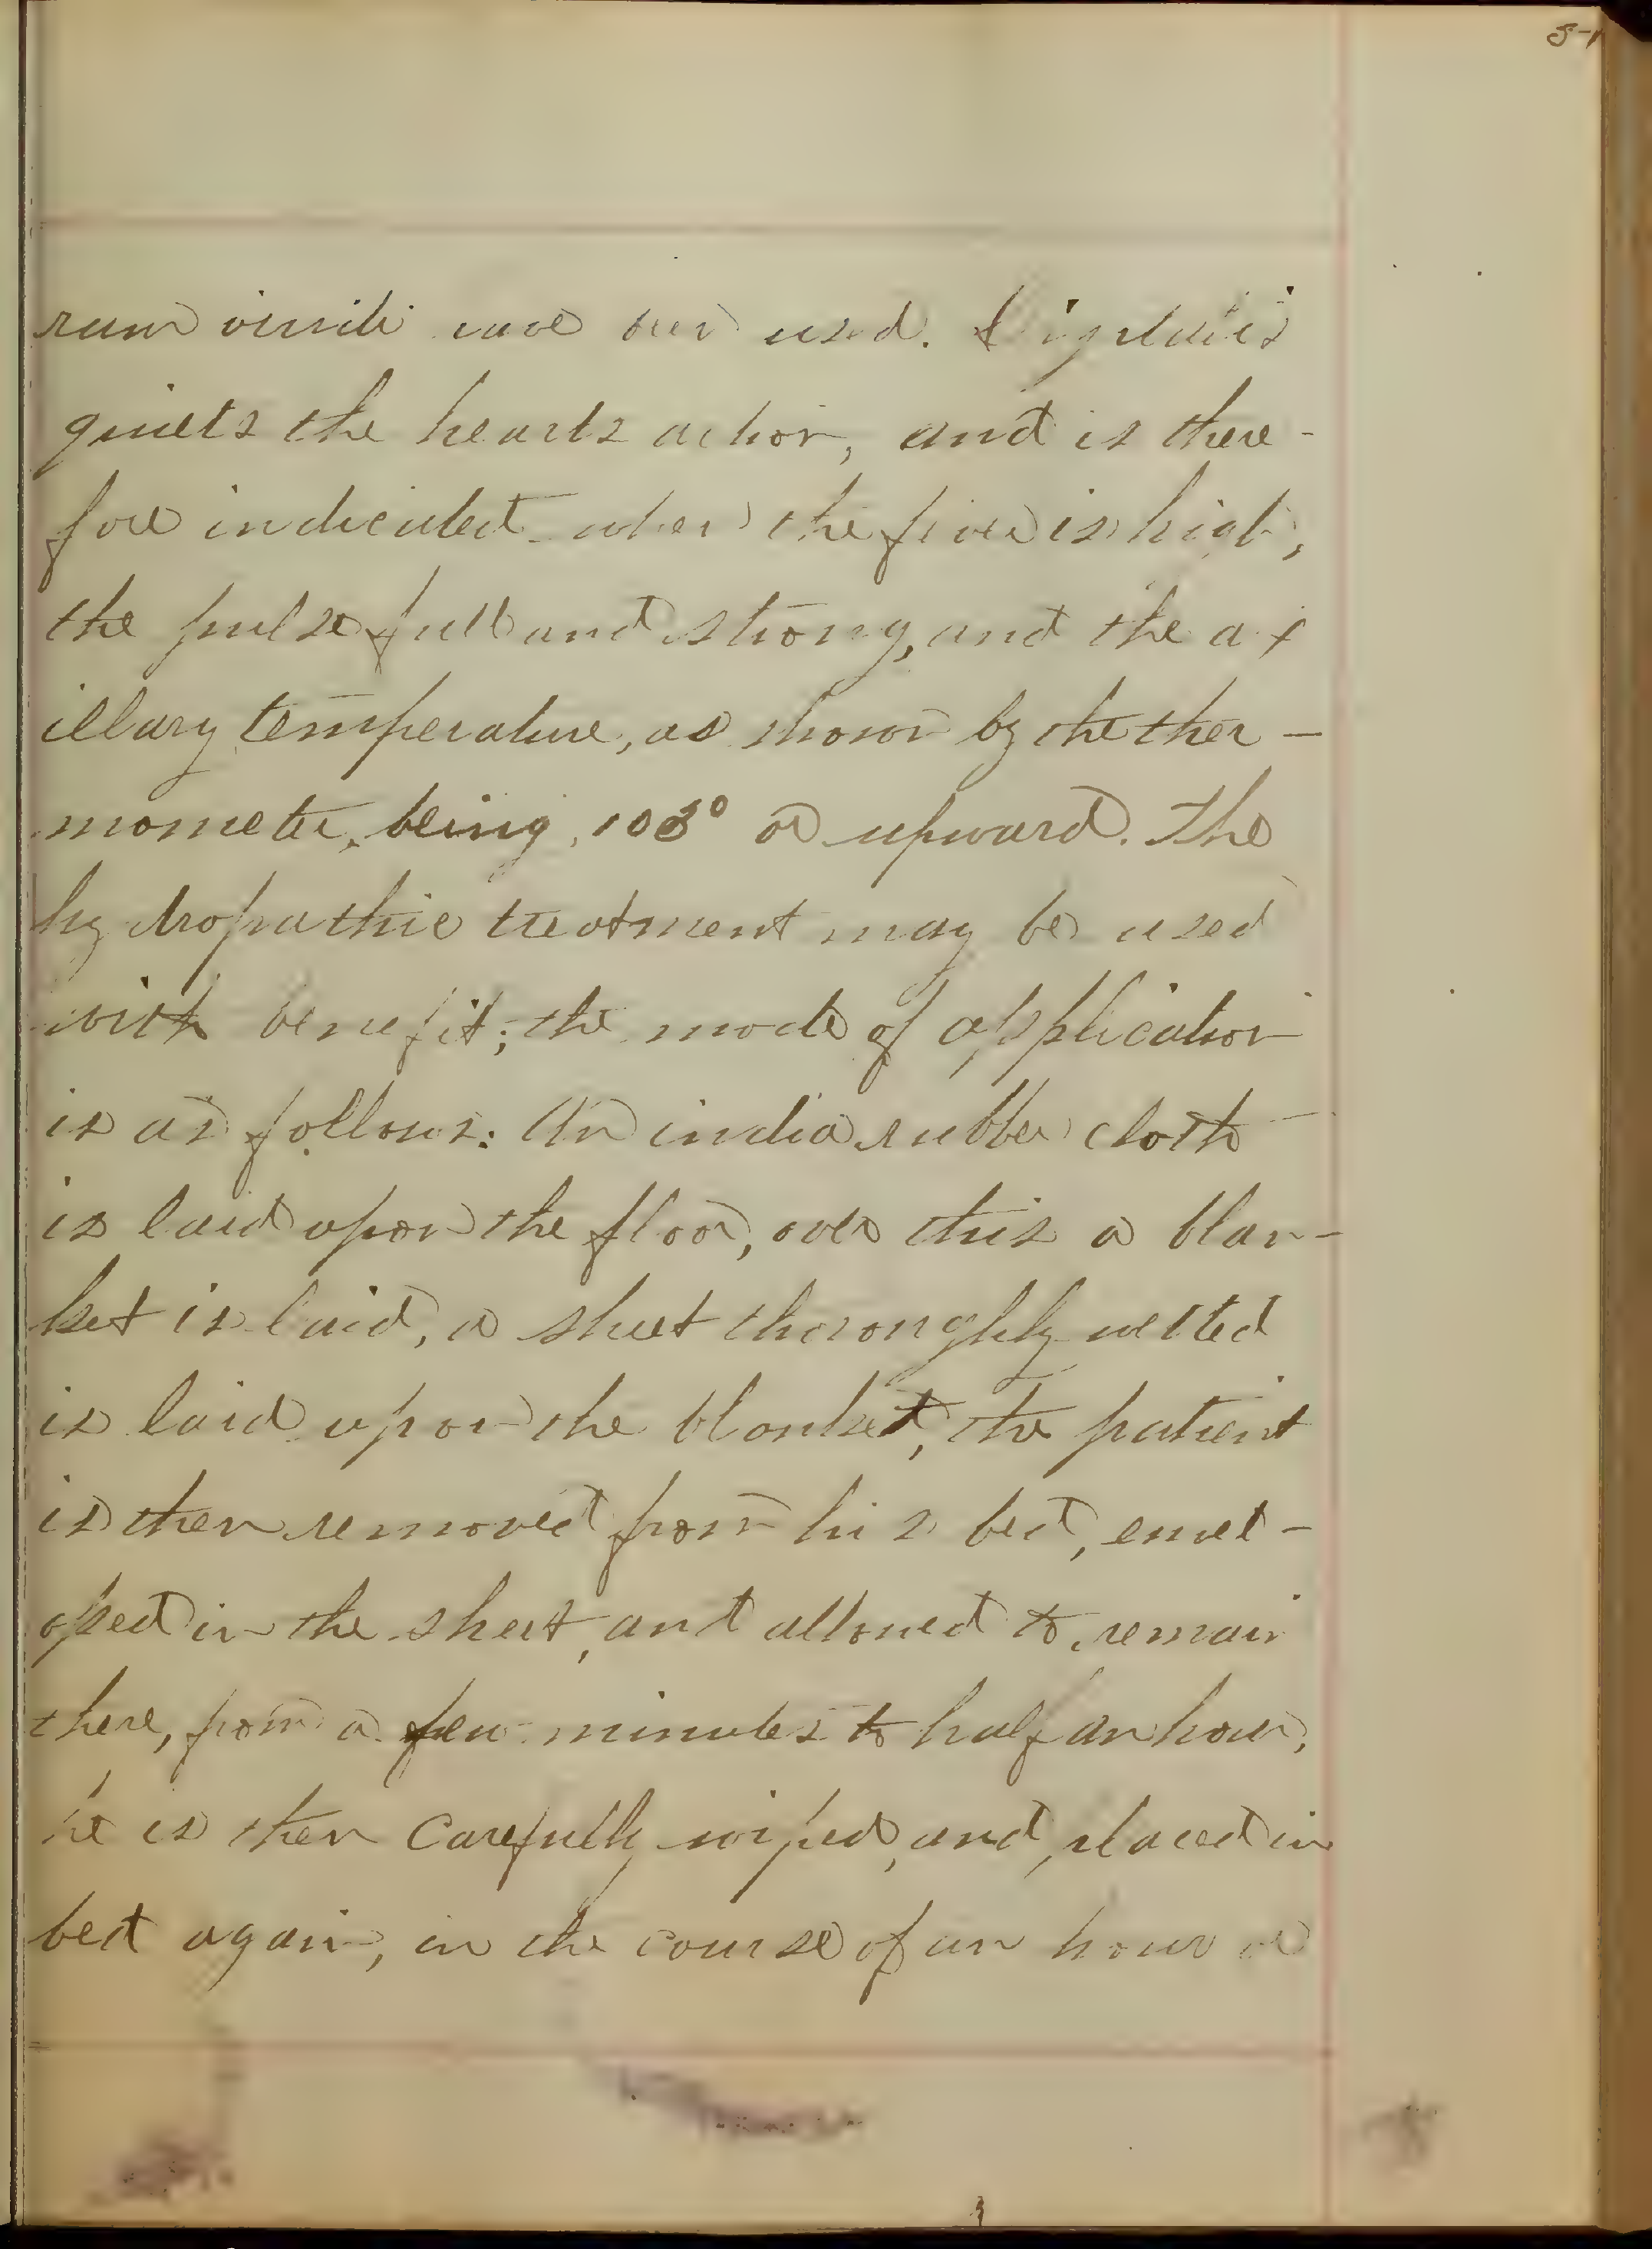 rum viride have been used. Digitalis
quiets the hearts action, and is there-
fore indicated when the fever is high,
the pulse full and strong, and the ax
illary temperature, as shown by the ther-
mometer, being, 103° or upward. The
hydropathic treatment may be used
with benefit; the mode of application
is as follows: An india rubber cloth
is laid upon the floor, over this a blan-
ket is laid, a sheet thoroughly wetted
is laid upon the blanket, the patient
is then removed from his bed, envel-
oped in the sheet, and allowed to remain
there, from a few minutes to half an hour,
he is then carefully wiped, and placed in
bed again, in the course of an hour or